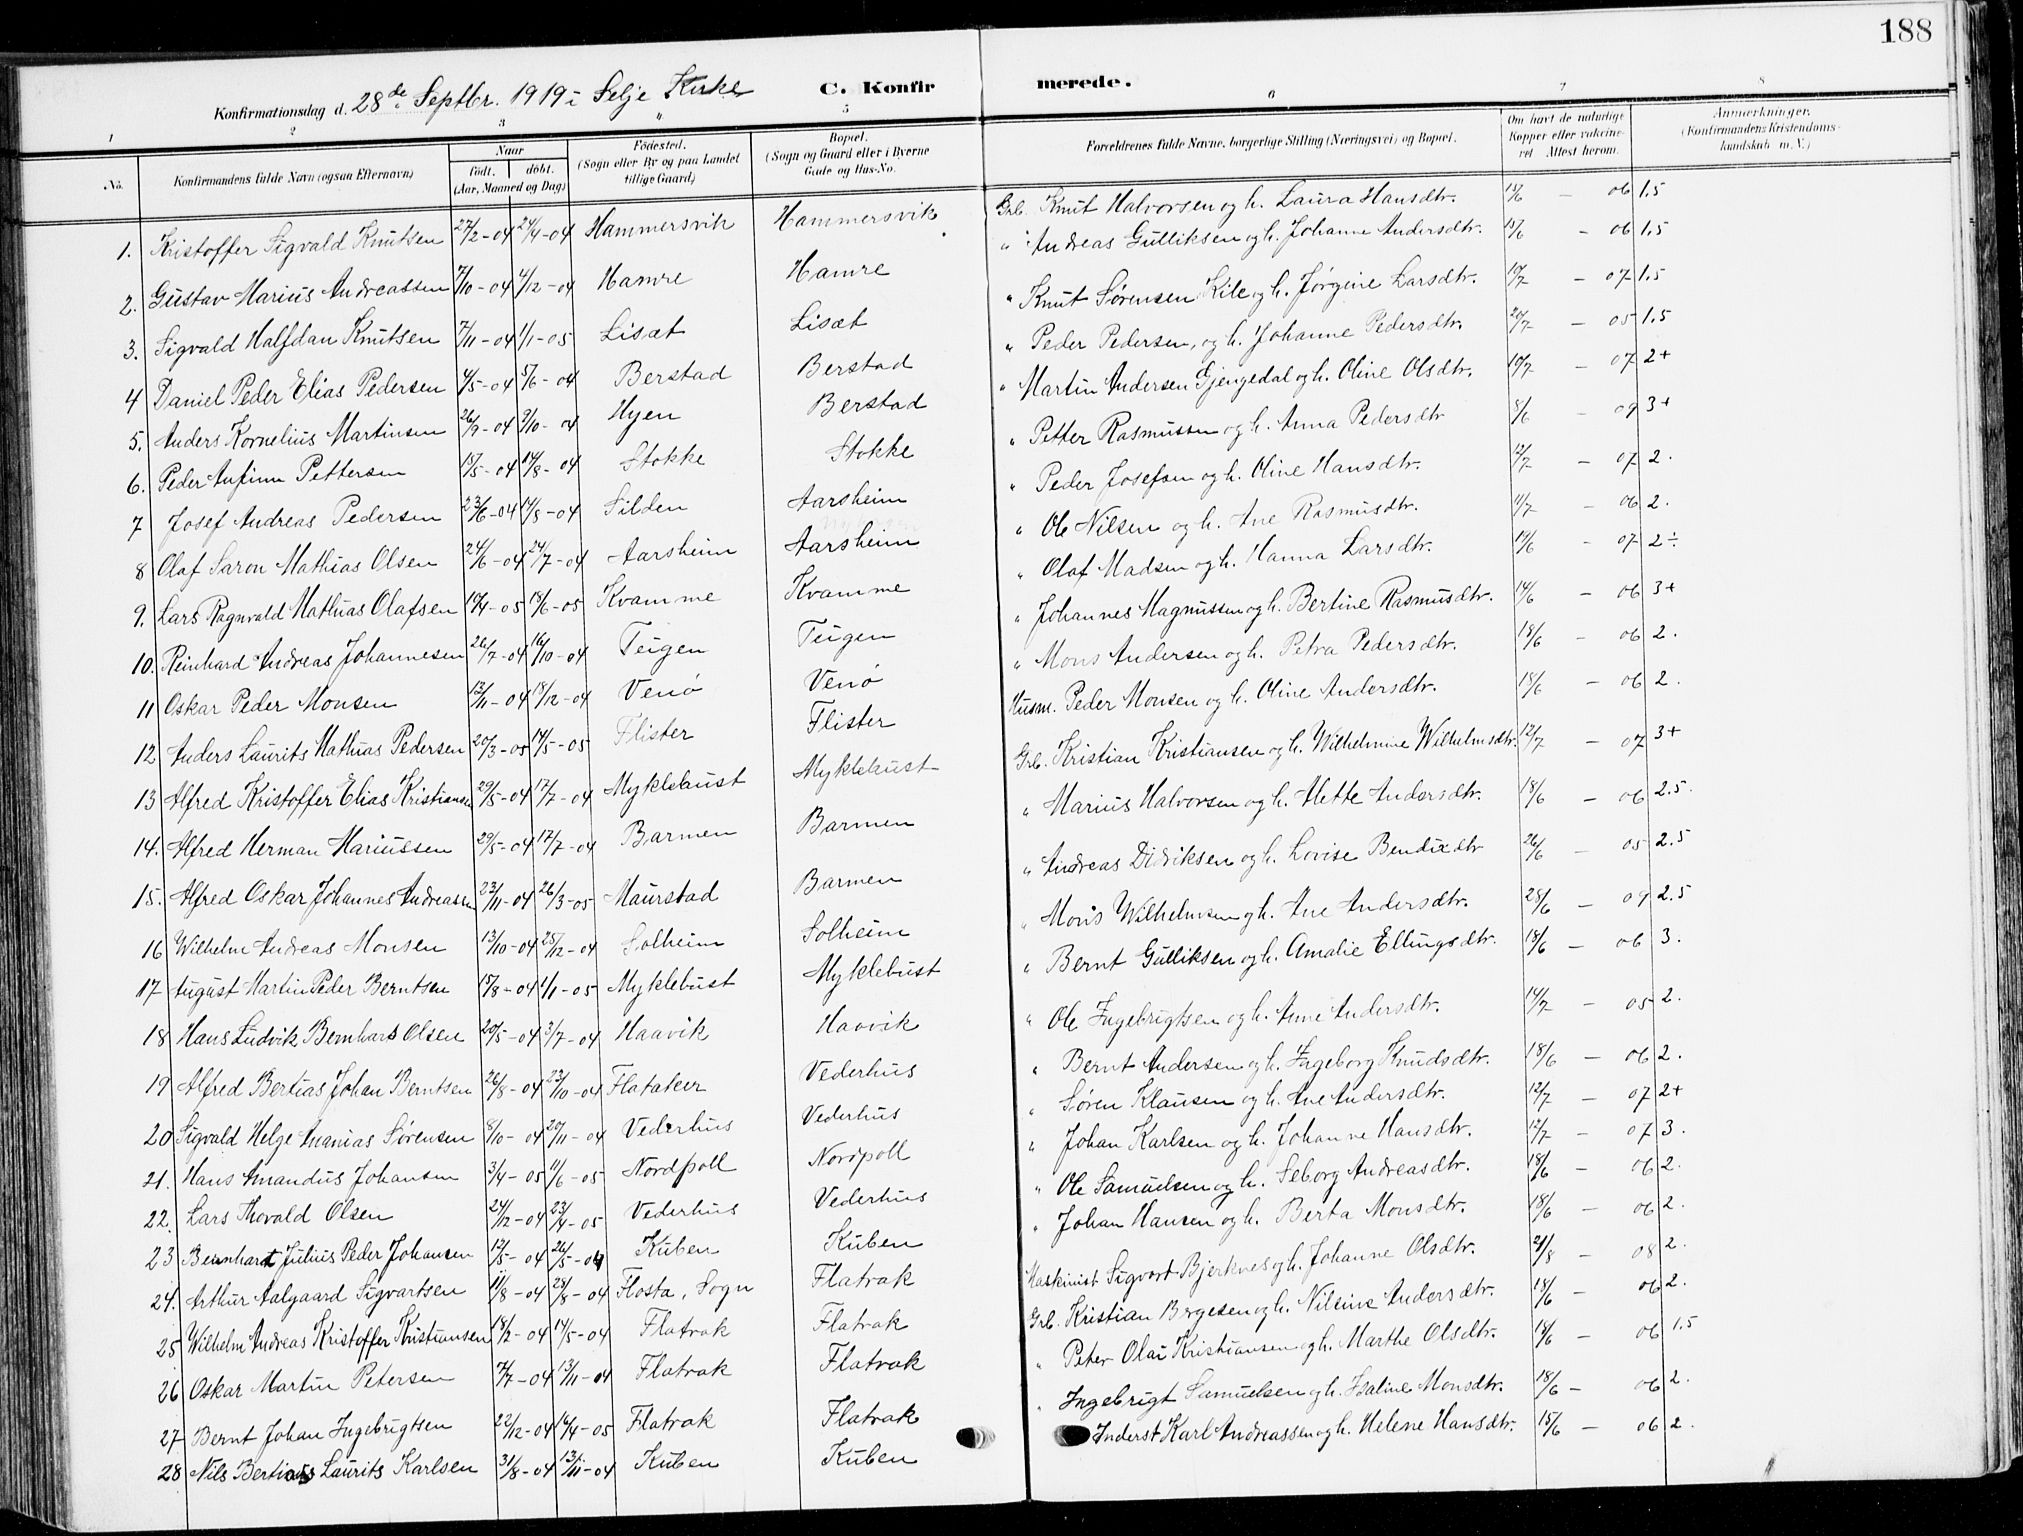 188
Konfirmationsdag d. 28de Septbr. 1919 i Selje Kirke C. Konfirmerede.
1 2 3 5 6 7 8
No. Konfirmandens fulde Navn (ogsaa Efternavn) Naar født. døbt. (Aar, Maaned og Dag) Fødested. (Sogn eller By og paa Landet tillige Gaard) Bopæl. (Sogn og Gaard eller i Byerne Gade og Hus-No. Forældrenes fulde Navne, borgerlige Stilling (Næringsvei) og Bopæl. Om havt de naturlige Kopper eller vakcineret. Attest herom. Anmærkninger. (Konfirmandens Kristendomskundskab m. V.)
1. Kristoffer Sigvald Knutsen 27/2-04 24/4-04 Hammersvik Hammersvik Grb. Knut Halvorsen og h. Laura Hansdtr. 15/6 - 06 1.5
2. Gustav Marius Andreassen 7/10-04 4/12-04 Hamre Hamre " Andreas Gulliksen og h. Johanne Andersdtr. 15/6 - 06 1.5
3. Sigvald Halfdan Knutsen 7/11-04 1/1-05 Lisæt Lisæt " Knut Sørensen Kile og h. Jørgine Larsdtr. 10/7 - 07 1.5
4 Daniel Peder Elias Pedersen 4/5-04 5/6-04 Berstad Berstad " Peder Pedersen, og h. Johanne Pedersdtr. 20/7 - 05 1.5
5. Anders Kornelius Martinsen 26/9-04 9/10-04 Hyen Berstad " Martin Andersen Gjengedal og h. Oline Olsdtr. 10/7 - 07 2+
6. Peder Anfinn Pettersen 15/5-04 14/8-04 Stokke Stokke " Petter Rasmussen og h. Anna Pedersdtr 8/6 - 09 3+
7 Josef Andreas Pedersen 23/6-04 14/8-04 Silden Aarsheim " Peder Josefsen og h. Oline Hansdtr. 12/7 - 07 2.
8 Olaf Saron Mathias Olsen 24/6-04 24/7-04 Aarsheim Aarsheim " Ole Nilsen og h. Ane Rasmusdtr. 11/7 - 06 2.
9. Lars Ragnvald Mathias Olafsen 10/4-05 18/6-05 Kvamme Kvamme " Olaf Madsen og h. Hanna Larsdtr. 11/6 - 07 2÷
10. Reinhard Andreas Johannesen 26/7-04 16/10-04 Teigen Teigen " Johannes Magnussen og h. Bertine Rasmusdtr. 14/6 - 06 3+
11 Oskar Peder Monsen 13/11-04 18/12-04 Venø Venø " Mons Andersen og h. Petra Pedersdtr. 18/6 - 06 2.
12 Anders Laurits Mathias Pedersen 20/3-05 14/5-05 Flister Flister Husm. Peder Monsen og h. Oline Andersdtr. 18/6 - 06 2.
13 Alfred Kristoffer Elias Kristiansen 29/5-04 17/7-04 Myklebust Myklebust Grb. Kristian Kristiansen og h. Wilhelmine Wilhelmsdtr. 12/7 - 07 3+
14. Alfred Herman Mariussen 29/5-04 17/7-04 Barmen Barmen " Marius Halvorsen og h. Mette Andersdtr. 18/6 - 06 2.5.
15. Alfred Oskar Johannes Andreassen 23/11-04 26/3-05 Maurstad Barmen " Andreas Didriksen og h. Lovise Bendixdtr 26/6 - 05 2.5
16 Wilhelm Andreas Monsen 13/10-04 25/12-04 Solheim Solheim " Mons Wilhelmsen og h. Ane Andersdtr. 28/6 - 09 2.5
17 August Martin Peder Berntsen 15/8-04 1/1-05 Myklebust Myklebust " Bernt Gulliksen og h. Amalie Ellingsdtr. 18/6 - 06 3.
18 Hans Ludvik Bernhard Olsen 20/5-04 3/7-04 Haavik Haavik " Ole Ingebrigtsen og h. Anne Andersdtr. 14/7 - 05 2.
19 Alfred Bertias Johan Berntsen 26/8-04 23/10-04 Flataker Vederhus " Bernt Andersen og h. Ingeborg Knudsdtr. 18/6 - 06 2.
20 Sigvald Helge Ananias Sørensen 8/10-04 20/11-04 Vederhus Vederhus " Søren Klausen og h. Ane Andersdtr. 12/7 - 07 2+
21. Hans Amandus Johansen 3/4-05 11/6-05 Nordpoll Nordpoll " Johan Karlsen og h. Johanne Hansdtr. 12/7 - 07 3.
22. Lars Thorvald Olsen 24/12-04 23/4-05 Vederhus Vederhus " Ole Samuelsen og h. Seborg Andreasdtr. 18/6 - 06 2.
23 Bernhart Julius Peder Johansen 12/5-04 26/5-04 Kuben Kuben " Johan Hansen og h. Berta Monsdtr. 18/6 - 06 2.
24. Arthur Aalgaard Sigvartsen 11/8-04 28/8-04 Flosta, Sogn Flatrak Maskinist Sigvart Bjerknes og h. Johanne Olsdtr. 21/8 - 08 2.
25 Wilhelm Andreas Kristoffer Kristiansen 18/2-04 14/5-04 Flatrak Flatrak Grb. Kristian Børgesen og h. Nilsine Andersdtr. 18/6 - 06 2.
26 Oskar Martin Petersen 7/7-04 13/11-04 Flatrak Flatrak " Peter Olai Kristiansen og h. Marthe Olsdtr. 18/6 - 06 1.5
27 Bernt Johan Ingebrigtsen 22/12-04 16/4-05 Flatrak Flatrak " Ingebrigt Samuelsen og h. Isaline Monsdtr. 18/6 - 06 2.
28 Nils Bertinus Laurits Karlsen 31/8-04 13/11-04 Kuben Kuben Inderst Karl Andreassen og h. Helene Hansdtr. 15/6 - 06 2.